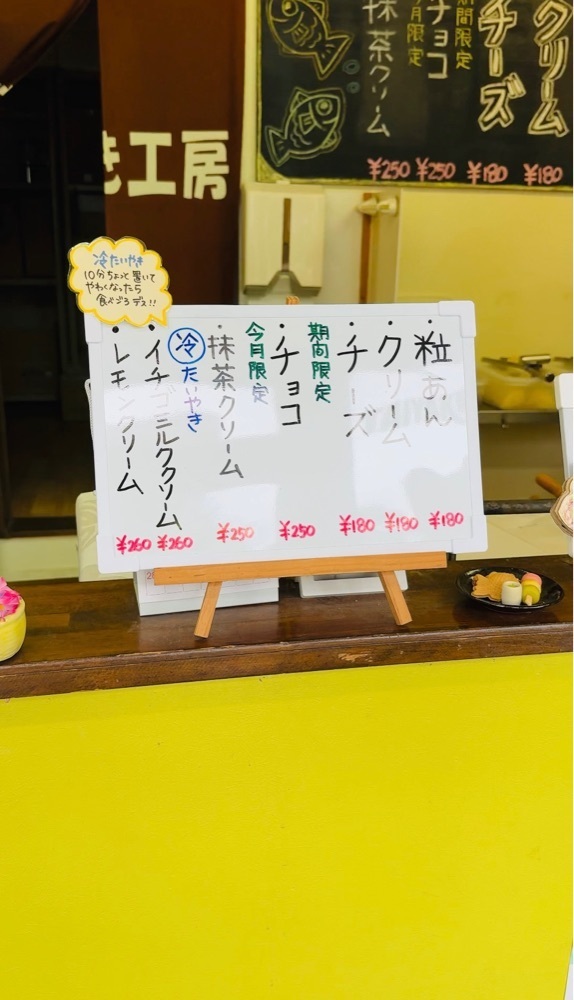 クリーム
チーズ
期間限定
チョコ
今月限定
抹茶クリーム
¥250 ¥250 ¥180 ¥180
き工房
冷たいやき
10分ちょっと置いて
やわくなったら
食べごろデス!!
・粒あん
・クリーム
・チーズ
期間限定
・チョコ
今月限定
・抹茶クリーム
冷たいやき
・イチゴミルククリーム
・レモンクリーム
¥260 ¥260 ¥250 ¥250 ¥180 ¥180 ¥180